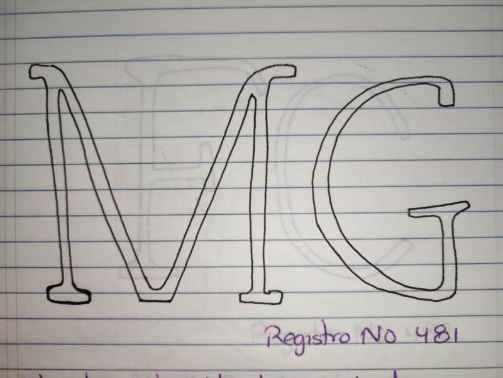 MG
Registro No 481